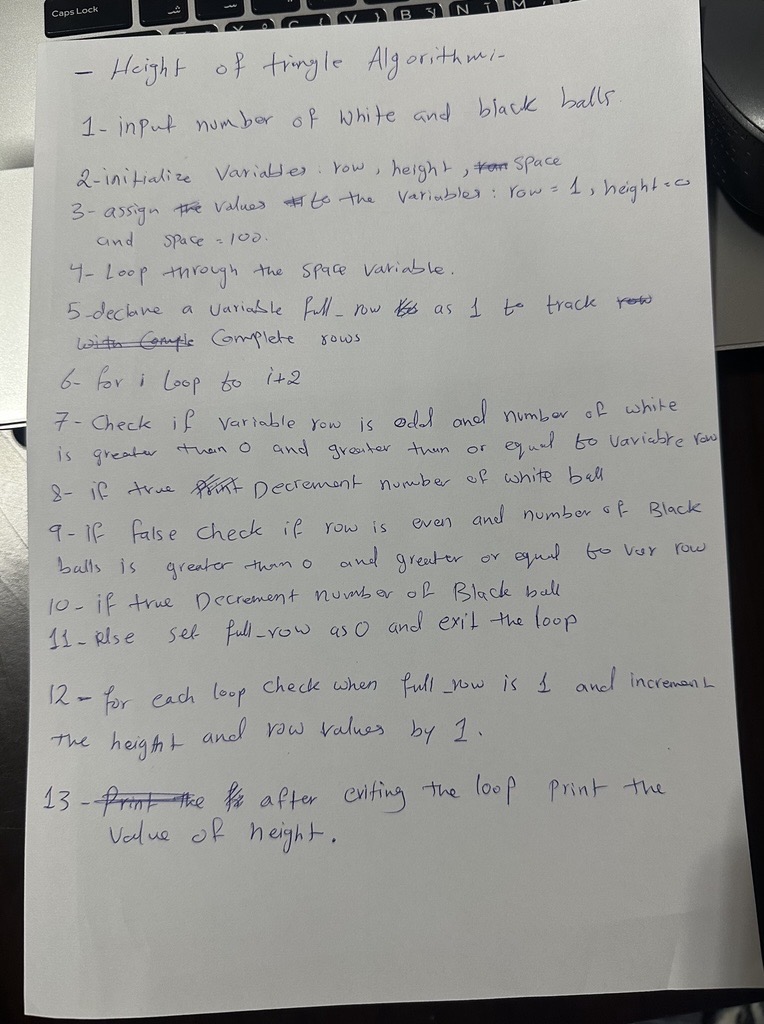 Caps Lock
C V B N M
- Height of tringle Algorithm:-
1- input number of white and black balls.
2- initialize Variables: row, height, space
3- assign values to the variables: row = 1, height = 0
and space = 100.
4- Loop through the space variable.
5- declare a variable full_row as 1 to track row
with Comple Complete rows
6- for i loop to i+2
7- Check if variable row is odd and number of white
is greater than 0 and greater than or equal to variable row
8- if true Print Decrement number of white ball
9- If false check if row is even and number of Black
balls is greater than 0 and greater or equal to var row
10- if true Decrement number of Black ball
11- else set full_row as 0 and exit the loop
12- for each loop check when full_row is 1 and increment
the height and row values by 1.
13- Print the after exiting the loop print the
Value of height.